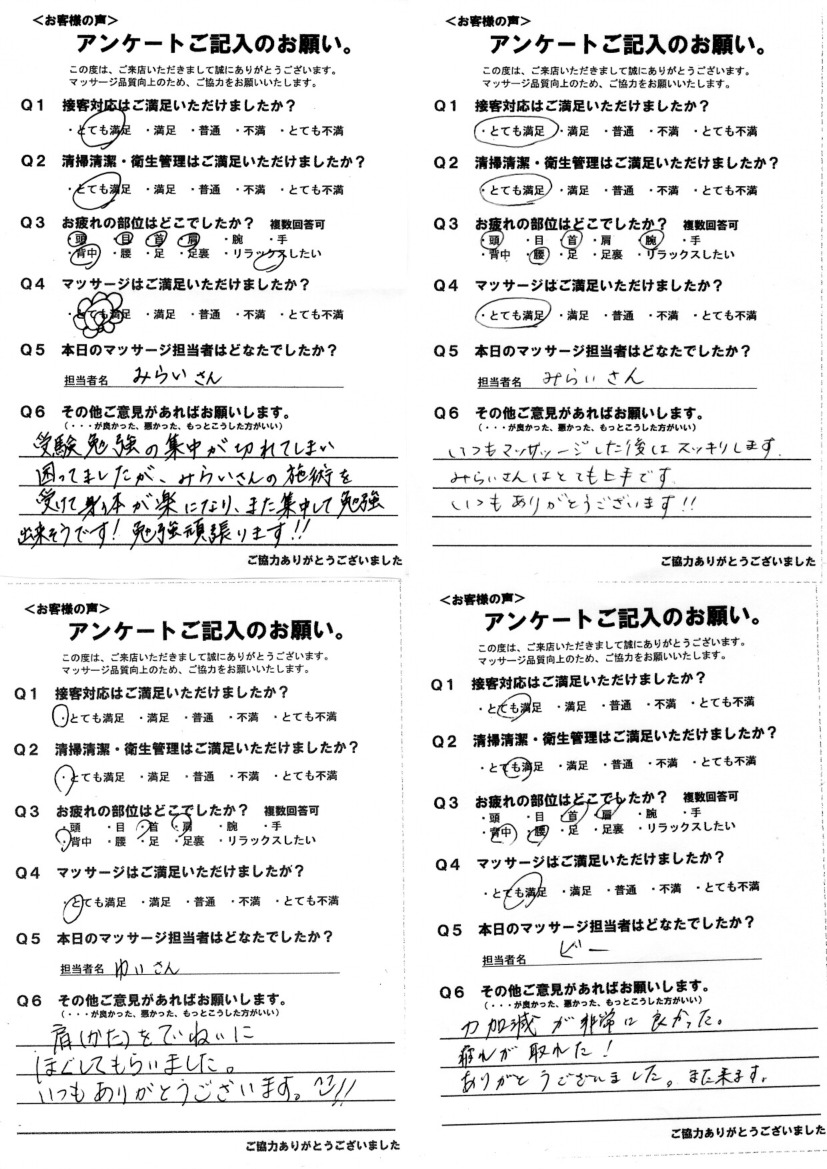 ＜お客様の声＞
アンケートご記入のお願い。
この度は、ご来店いただきまして誠にありがとうございます。
マッサージ品質向上のため、ご協力をお願いいたします。
Q1 接客対応はご満足いただけましたか？
・とても満足 ・満足 ・普通 ・不満 ・とても不満
Q2 清掃清潔・衛生管理はご満足いただけましたか？
・とても満足 ・満足 ・普通 ・不満 ・とても不満
Q3 お疲れの部位はどこでしたか？ 複数回答可
・頭 ・目 ・首 ・肩 ・腕 ・手
・背中 ・腰 ・足 ・足裏 ・リラックスしたい
Q4 マッサージはご満足いただけましたか？
・とても満足 ・満足 ・普通 ・不満 ・とても不満
Q5 本日のマッサージ担当者はどなたでしたか？
担当者名 みらいさん
Q6 その他ご意見があればお願いします。
（・・・が良かった、悪かった、もっとこうした方がいい）
受験勉強の集中が切れてしまい
困ってましたが、みらいさんの施術を
受けて身体が楽になり、また集中して勉強
出来そうです！勉強頑張ります!!
ご協力ありがとうございました
＜お客様の声＞
アンケートご記入のお願い。
この度は、ご来店いただきまして誠にありがとうございます。
マッサージ品質向上のため、ご協力をお願いいたします。
Q1 接客対応はご満足いただけましたか？
・とても満足 ・満足 ・普通 ・不満 ・とても不満
Q2 清掃清潔・衛生管理はご満足いただけましたか？
・とても満足 ・満足 ・普通 ・不満 ・とても不満
Q3 お疲れの部位はどこでしたか？ 複数回答可
・頭 ・目 ・首 ・肩 ・腕 ・手
・背中 ・腰 ・足 ・足裏 ・リラックスしたい
Q4 マッサージはご満足いただけましたか？
・とても満足 ・満足 ・普通 ・不満 ・とても不満
Q5 本日のマッサージ担当者はどなたでしたか？
担当者名 みらいさん
Q6 その他ご意見があればお願いします。
（・・・が良かった、悪かった、もっとこうした方がいい）
いつもマッサッージした後はスッキリします.
みらいさんはとても上手です.
いつもありがとうございます!!
ご協力ありがとうございました
＜お客様の声＞
アンケートご記入のお願い。
この度は、ご来店いただきまして誠にありがとうございます。
マッサージ品質向上のため、ご協力をお願いいたします。
Q1 接客対応はご満足いただけましたか？
・とても満足 ・満足 ・普通 ・不満 ・とても不満
Q2 清掃清潔・衛生管理はご満足いただけましたか？
・とても満足 ・満足 ・普通 ・不満 ・とても不満
Q3 お疲れの部位はどこでしたか？ 複数回答可
・頭 ・目 ・首 ・肩 ・腕 ・手
・背中 ・腰 ・足 ・足裏 ・リラックスしたい
Q4 マッサージはご満足いただけましたが？
・とても満足 ・満足 ・普通 ・不満 ・とても不満
Q5 本日のマッサージ担当者はどなたでしたか？
担当者名 ゆいさん
Q6 その他ご意見があればお願いします。
（・・・が良かった、悪かった、もっとこうした方がいい）
肩(かた)をていねいに
ほぐしてもらいました。
いつもありがとうございます。!!
ご協力ありがとうございました
＜お客様の声＞
アンケートご記入のお願い。
この度は、ご来店いただきまして誠にありがとうございます。
マッサージ品質向上のため、ご協力をお願いいたします。
Q1 接客対応はご満足いただけましたか？
・とても満足 ・満足 ・普通 ・不満 ・とても不満
Q2 清掃清潔・衛生管理はご満足いただけましたか？
・とても満足 ・満足 ・普通 ・不満 ・とても不満
Q3 お疲れの部位はどこでしたか？ 複数回答可
・頭 ・目 ・首 ・肩 ・腕 ・手
・背中 ・腰 ・足 ・足裏 ・リラックスしたい
Q4 マッサージはご満足いただけましたか？
・とても満足 ・満足 ・普通 ・不満 ・とても不満
Q5 本日のマッサージ担当者はどなたでしたか？
担当者名 ビー
Q6 その他ご意見があればお願いします。
（・・・が良かった、悪かった、もっとこうした方がいい）
力加減が非常に良かった。
疲れが取れた！
ありがとうございました。また来ます。
ご協力ありがとうございました